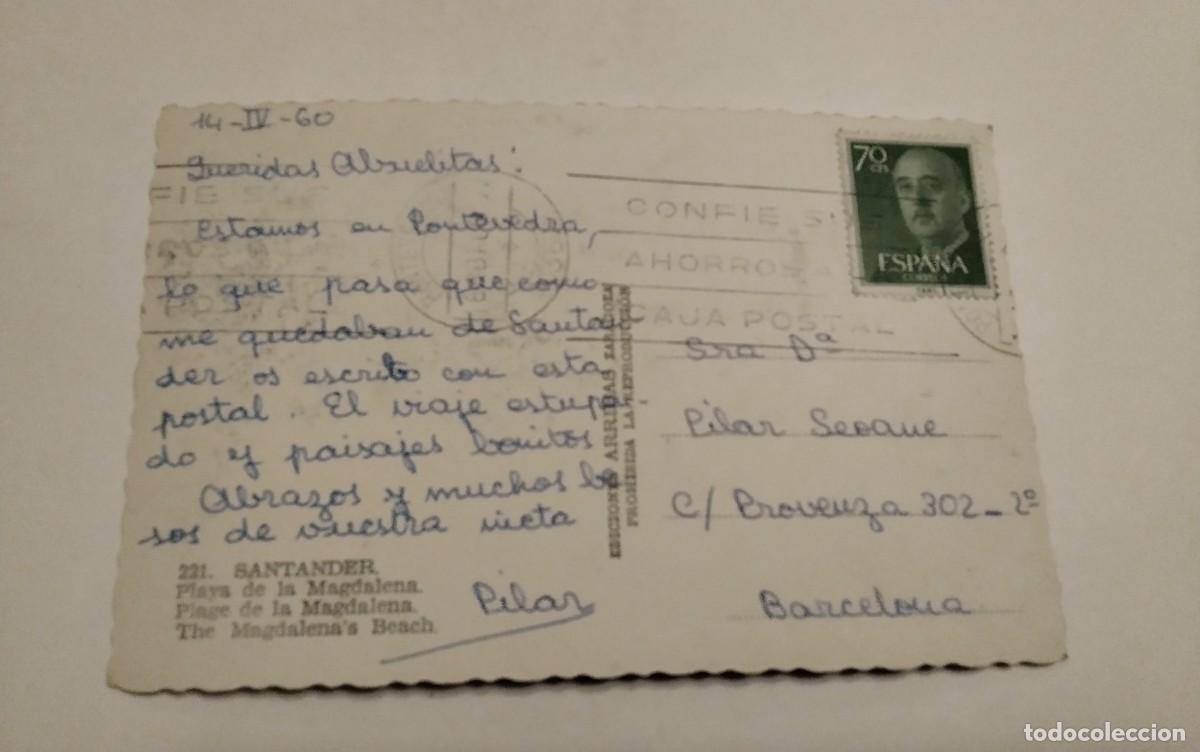 14-IV-60
Queridas Abuelitas:
Estamos en Pontevedra,
lo que pasa que como
me quedaban de Santan
der os escribo con esta
postal. El viaje estupen-
do y paisajes bonitos
Abrazos y muchos be
sos de vuestra nieta
Pilar
221. SANTANDER.
Playa de la Magdalena.
Plage de la Magdalena.
The Magdalena's Beach.
EDICIONES ARRIBAS ZARAGOZA
PROHIBIDA LA REPRODUCCIÓN
70 cts
ESPAÑA
CORREOS
CONFIE SUS
AHORROS A
CAJA POSTAL
Sra Dª
Pilar Seoane
C/ Provenza 302-2º
Barcelona
todocoleccion